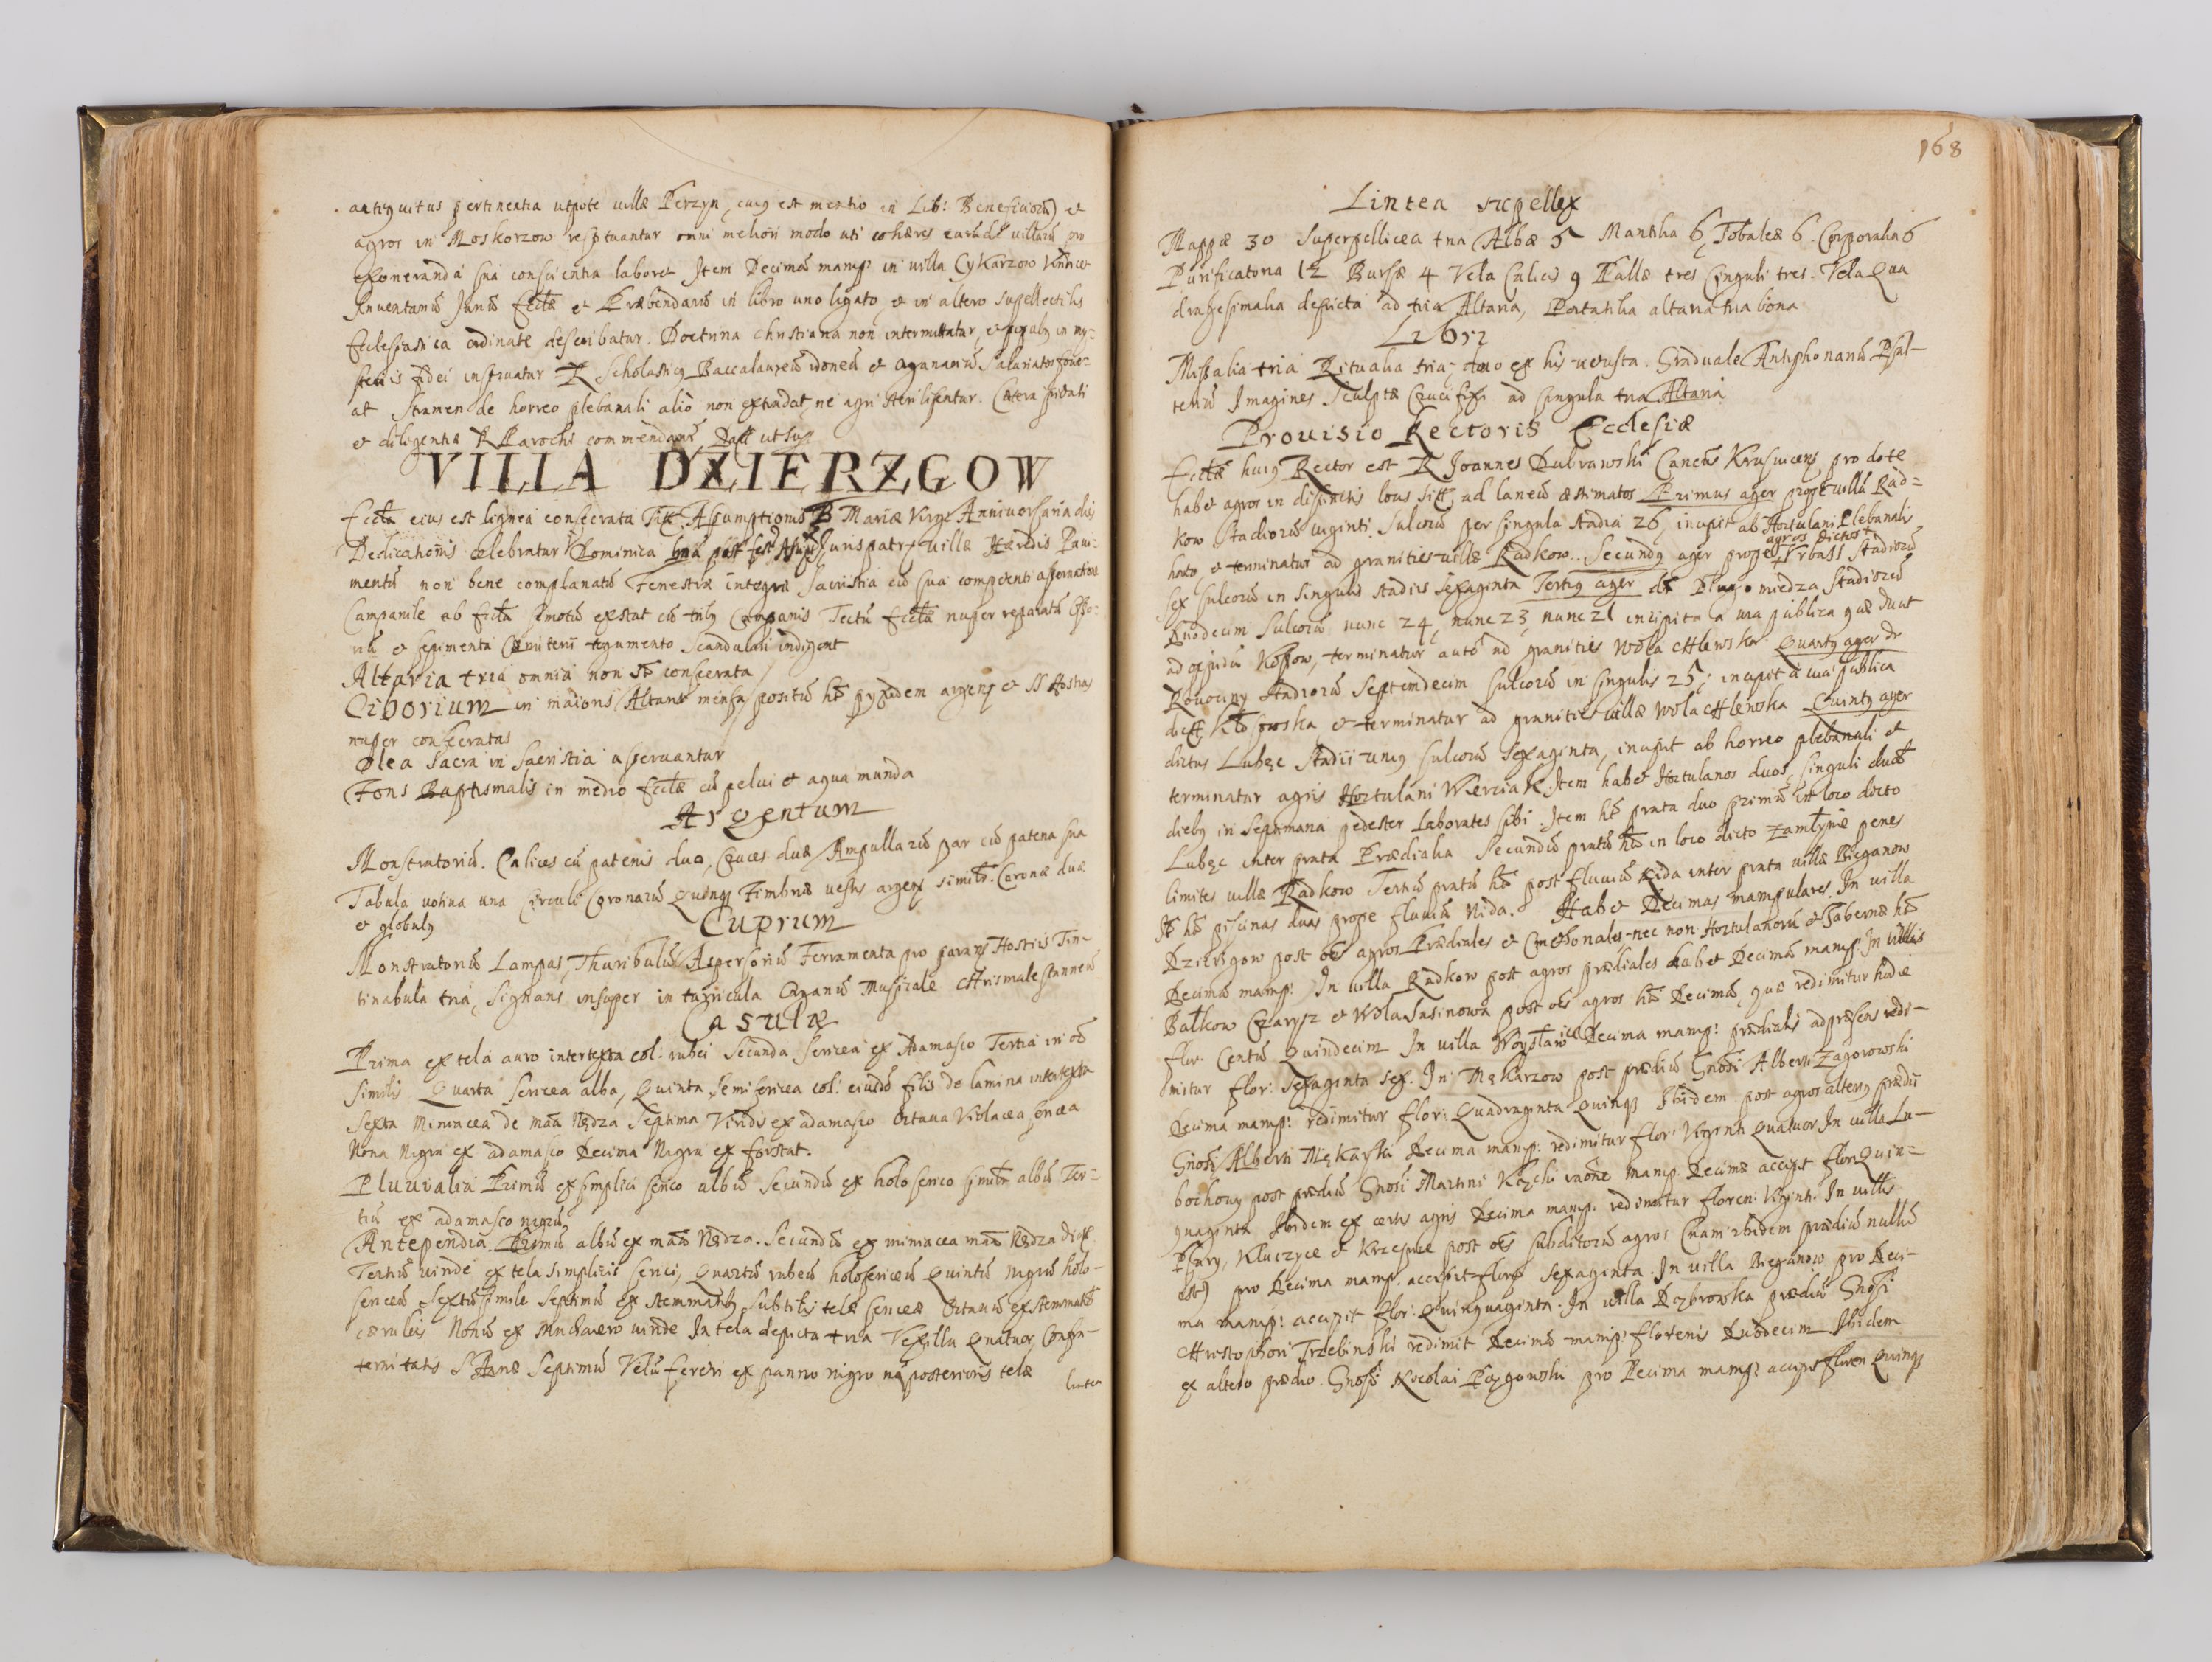 antiquitus pertinentia utpote villæ Perzyn, cuius est mentio in Lib: Beneficiorũ) et
agros in Moskorzow restituantur omni meliori modo uti cohæres earundẽ villarũ pro
exoneranda sua conscientia laboret Item Decimã manip: in villa Cykarzow
Inventariũ Juriũ Eccłæ et Præbendariũ in libro uno ligato, et in altero supellectilis
Ecclesiastica ordinate describatur. Doctrina christiana non intermittatur, et populus in my-
steriis fidei instruatur R Scholasticus Baccalaureũ idoneũ et Organariũ Salariatos foue-
at Stramen de horreo plebanali alio non extradat, ne agri sterilisentur. Cætera
et diligentiæ R Parochi commendant̃. Datt ut Supr
VILLA DZIERZGOW
Eccła eius est lignea consecrata Titt. Assumptionis B Mariæ Virgĩ Anniversaria dies
Dedicationis celebratur Dominica post fest Juris patrꝫ villæ Hæredis Pavi-
mentũ non bene complanatũ Fenestræ integræ Sacristia cũ sua competenti assernatione
Campanile ab Eccła remotũ exstat cũ tribus Campanis Tectũ Eccłæ nuper reparatũ Osso-
riũ et sepimenta Cæmiterii tegumento Scandulari indigent
Altaria tria omnia non st̃ consecrata
Ciborium in maioris Altaris mensa positũ ht̃ pyxidem argenꝫ et SS Hostias
nuper consecratas
Olea Sacra in Sacristia asservantur
Fons Baptismalis in medio Eccłæ cũ pelvi et aqua munda
Argentum
Monstratoriũ. Calices cũ patenis duo, Cruces duæ Ampullarũ par cũ patena sua
Tabula votiva una Circuli Coronarũ Quinqꝫ Fimbriæ vestis argenꝫ similit̃. Coronæ duæ
et globulꝫ
Cuprum
Monstratoriũ Lampas, Thuribulũ Aspersoriũ Ferramenta pro parans Hostiis Tin-
tinabula tria, Signans insuper in turricula Organũ Musicale Chrismale stanneũ
Casulæ
Prima ex tela auro intertexta col: rubei Secunda Sericea ex Adamasco Tertia in oĩ
similis Quarta Sericea alba, Quinta Semisericea col: eiusdẽ filis de lamina intertexta
Sexta Miniacea de mãa Nędza Septima Viridis ex adamasco Octava Violacea sericea
Nona Nigra ex adamasco Decima Nigra ex forstat.
Pluvialia Primũ ex simplici serico albũ Secundũ ex holo serico similit̃ albũ Ter-
tiũ ex adamasco nigrũ
Antependia Primũ albũ ex mãa Nędza. Secundũ ex miniacea mãa Nędza dict
Tertiũ viride ex tela simplicis serici, Quartũ rubeũ holosericeũ Quintũ nigrũ holo-
sericeũ Sextũ simile Septimũ ex stemmatibꝫ subtilis telæ sericeæ Octavũ ex stemmatib̃
cæruleis Nonũ ex Muchaiero viride In tela depicta tria Vexilla Quatuor, Confra-
ternitatis S Annæ Septimũ Velũ feretri ex panno nigro posterioris telæ
lintea
168
Lintea supellex
Mappæ 30 Superpellicea tria Albæ 5 Mantilia 6, Tobaleæ 6. Corporalia 6
Purificatoria 12 Bursæ 4 Vela Calicis 9 Pallæ tres Cinguli tres. Vela Qua
dragesimalia depicta ad tria Altaria, Portatilia altaria tria bona
Libri
Missalia tria Ritualia tria, duo ex his vetusta. Graduale Antiphonariũ Psal-
teriũ Imagines Sculptæ Crucifixi ad singula tria Altaria
Provisio Rectoris Ecclesiæ
Eccłæ huius Rector est R Joannes Dubrawski Canctus Krusvicens pro dote
habet agros in distinctis locis sitt. ad laneũ æstimatos Primus ager prope villã Rad-
kow Stadiorũ viginti Sulcorũ per singula stadia 26, incipit ab Hortulani Plebanali
horto, et terminatur ad granities villæ Radkow. Secundus ager prope agros dictos Vrbass Stadiorũ
sex sulcorũ in singulis stadiis sexaginta Tertius ager dt̃ Długo miedza Stadiorũ
Duodecim Sulcorũ nunc 24, nunc 23, nunc 21 incipit a via publica quæ ducit
ad oppidũ Kossow, terminatur aut̃ ad granities Wola chlewska Quartus ager dr̃
Rovociny Stadiorũ Septemdecim Sulcorũ in singulis 25; incipit a via publica
dictt. Kossowska, et terminatur ad granities villæ Wola chlewska Quintus ager
dictus Lubęc Stadii unius sulcorũ sexaginta, incipit ab horreo plebanali et
terminatur agris Hortulani Werciak. Item habet Hortulanos duos, singuli duob̃
diebus in Septimana pedester Laborates sibi. Item ht̃ prata duo primũ in loco dicto
Lubęc inter prata Prædialia Secundũ pratũ ht̃ in loco dicto Zamłynie penes
limites villæ Radkow Tertiũ pratũ ht̃ post fluviũ Nida inter prata villæ Bieganow
It̃ ht̃ piscinas duas prope fluviũ Nida. Habet Decimas manipulares. In villa
Dzierzgow post oẽs agros Prædiales et Cmethonales nec non Hortulanorũ et Tabernæ ht̃
Decimã manip: In villa Radkow post agros prædiales habet Decimã manip: In villis
Bałkow Czarysz et Wola Sasinowa post oẽs agros ht̃ Decimã, quæ redimitur hodie
flor: Centũ Quindecim In villa Woysławice Decima manip: prædialis ad præsens redi-
mitur flor: Sexaginta sex. In Mękarzow post prædiũ Gnosi Alberti Zagorowski
Decima manip: redimitur flor: Quadraginta Quinqꝫ Ibidem post agros alterius prædii
Gnosi Alberti Mękarski Decima manip: redimitur flor: Viginti Quatuor In villa Lu-
bochony post prædiũ Gnosi Martini rãone manip. Decimæ accipit flor Quin-
quaginta Ibidem ex certis agris Decima manip. redimitur floren: Viginti. In villis
Psary, Kluczyce et Krzepice post oẽs subditorũ agros (nam ibidem prædiũ nullũ
est) pro Decima manip. accipit floren sexaginta. In villa Bieganow pro Deci-
ma manip: accipit flor: Quinquaginta. In villa Dąbrowka prædiũ Gnosi
Christophori Trzebinski redimit Decimã manip: florenis Duodecim. Ibidem
ex altero prædio Gnosi Nicolai Pągowski pro Decima manip: accipit floren Quinqꝫ